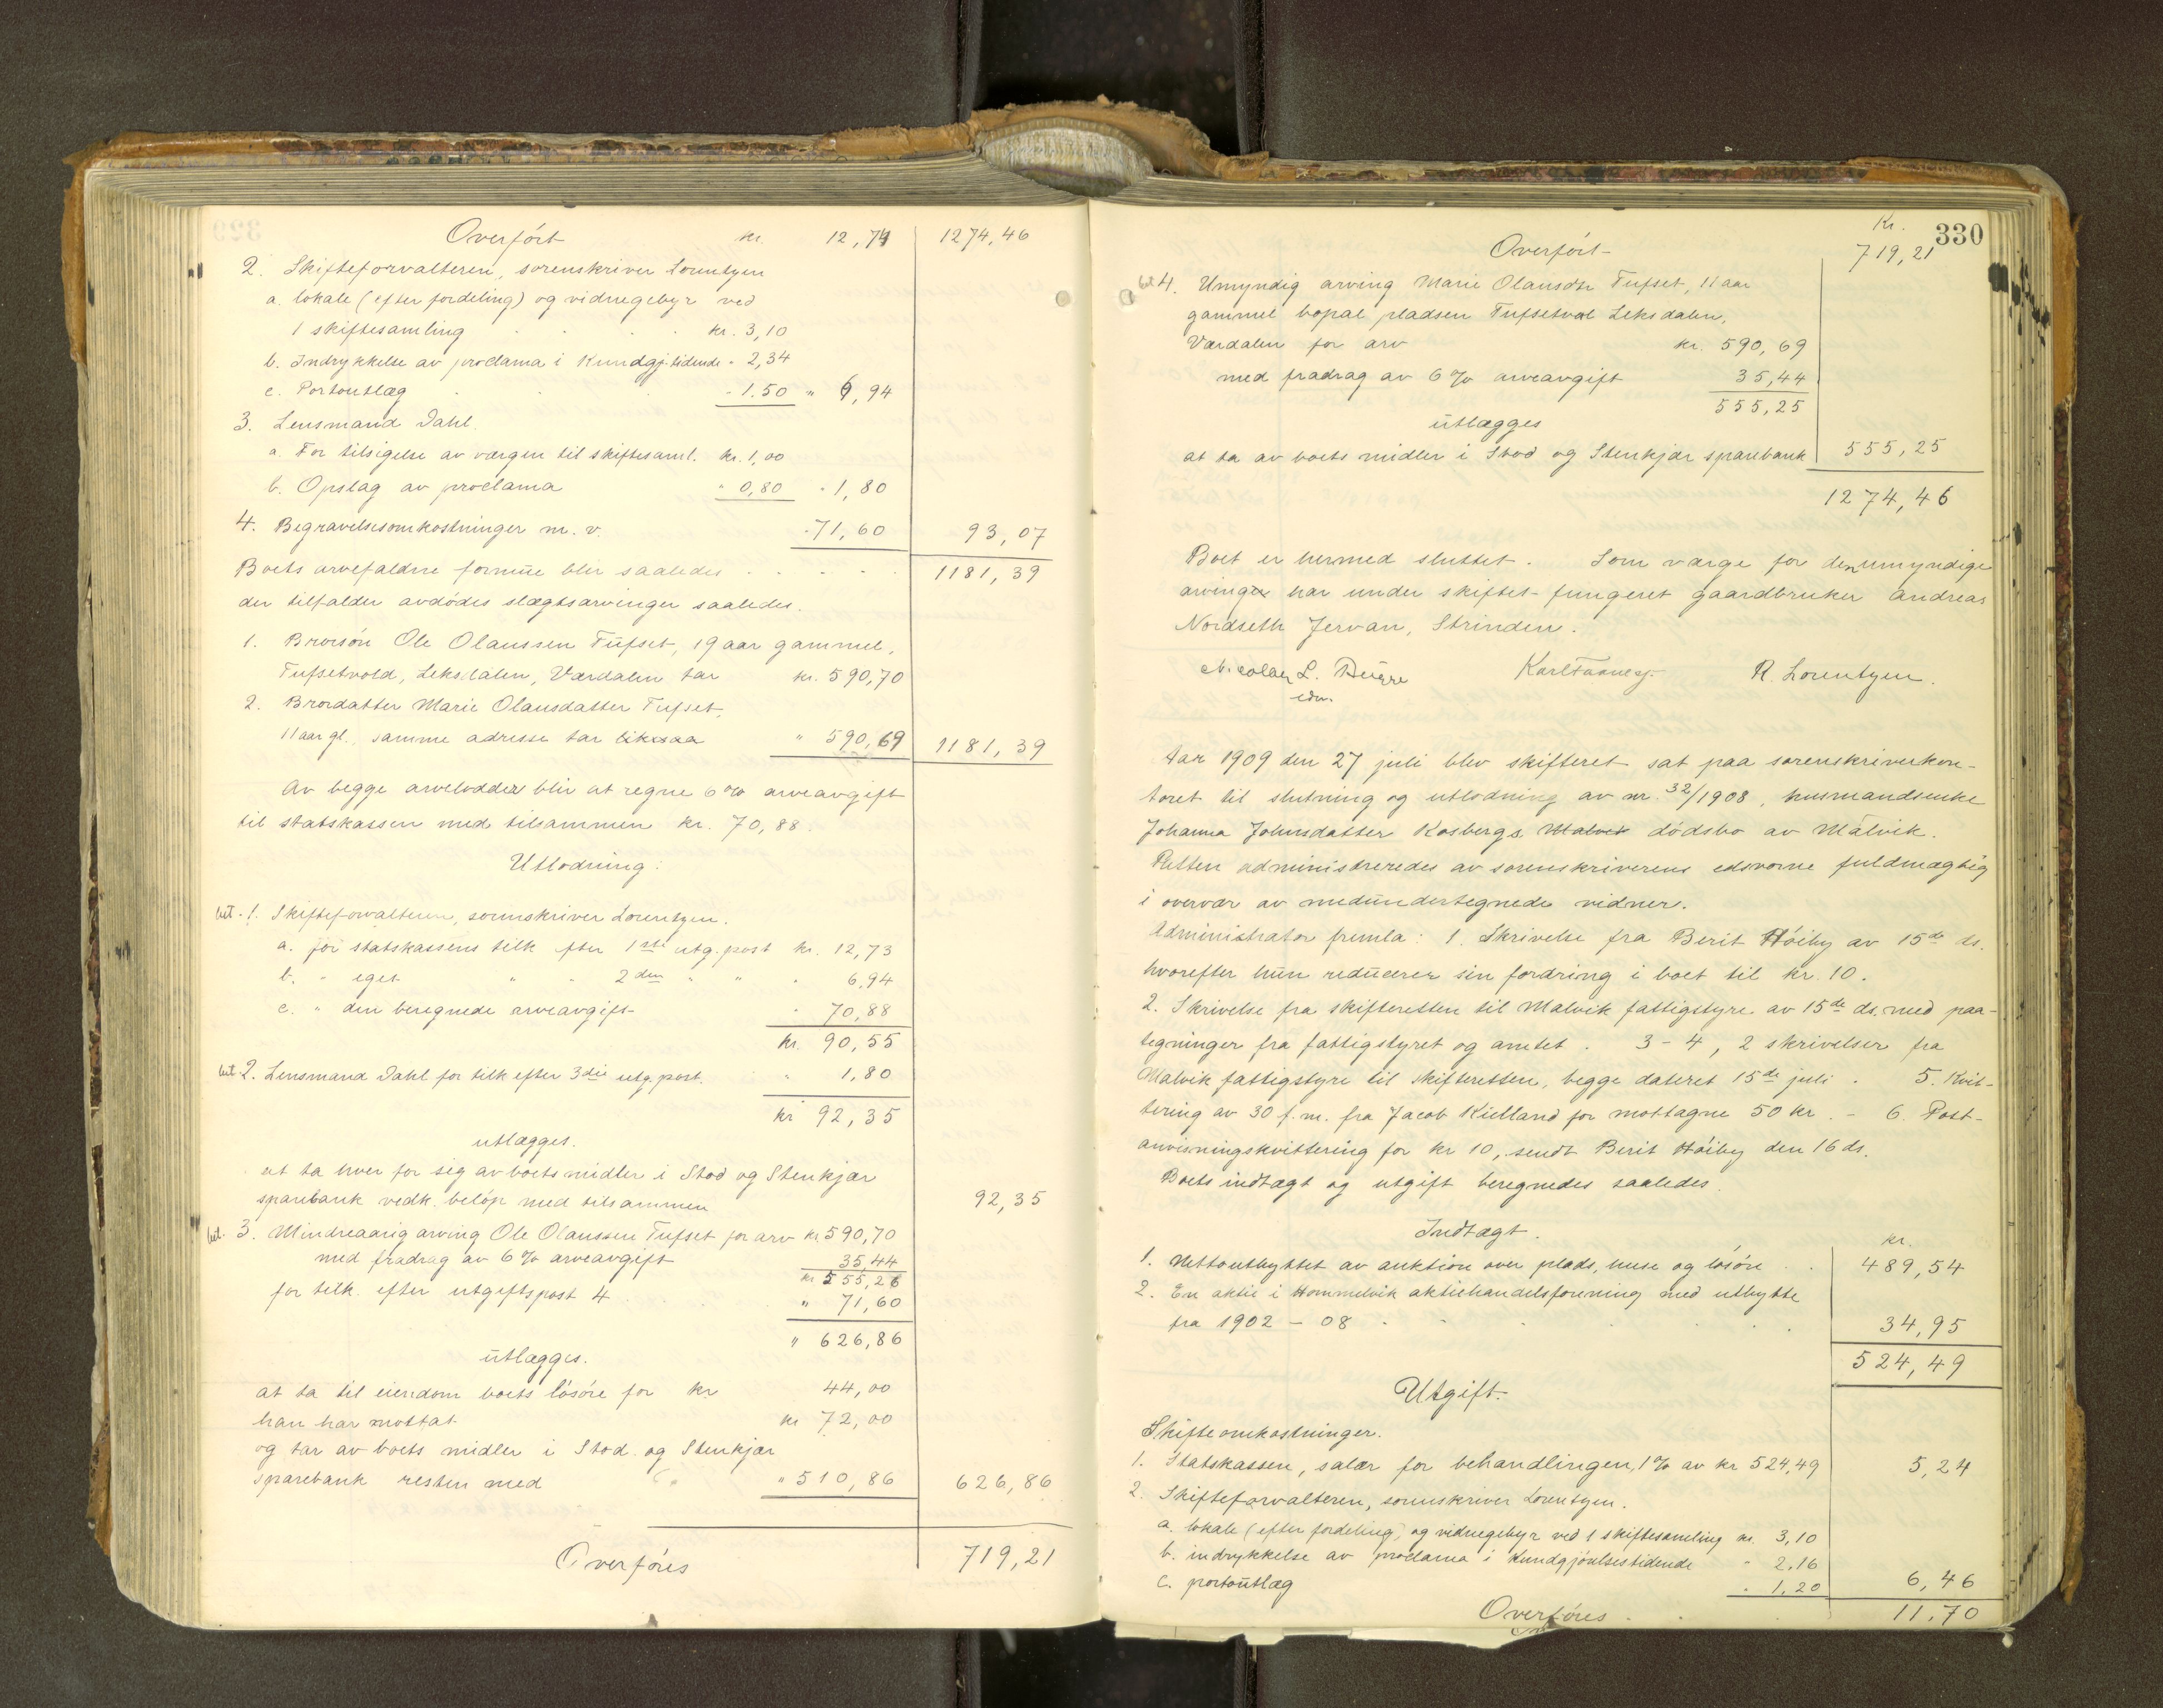 Overført kr. 12,74 1274,46
2. Skifteforvalteren, sorenskriver Lorentzen
a. lokale (efter fordeling) og vidnegebyr ved
1 skiftesamling kr. 3,10
b. Indrykkelse av proclama i Kundgj.tidende - 2,34
c. Portoutlæg - 1.50 " 6,94
3. Lensmand Dahl.
a. For tilsigelse av værgen til skiftesaml. kr. 1,00
b. Opslag av proclama " 0,80 - 1,80
4. Begravelsesomkostninger m. v. - 71,60 93,07
Boets arvefaldne formue blir saaledes 1181,39
der tilfalder avdødes slægtsarvinger saaledes.
1. Brorsøn Ole Olaussen Tufset, 19 aar gammel,
Tufsetvold, Leksdalen, Værdalen tar kr. 590,70
2. Brordatter Marie Olausdatter Tufset,
11 aar gl., samme adresse tar likesaa " 590,69 1181,39
Av begge arvelodder blir at regne 6 % arveavgift
til statskassen med tilsammen kr. 70,88.
Utlodning:
bet. 1. Skifteforvalteren, sorenskriver Lorentzen.
a. for statskassens tilk efter 1ste utg. post kr. 12,73
b. " eget " " 2den " " " 6,94
c. " den beregnede arveavgift - 70,88
kr. 90,55
bet. 2. Lensmand Dahl for tilk efter 3die utg. post. " 1,80
kr 92,35
utlægges.
at ta hver for sig av boets midler i Stod og Stenkjær
sparebank vedk. beløp med tilsammen 92,35
bet. 3. Mindreaarig arving Ole Olaussen Tufset for arv kr 590,70
med fradrag av 6 % arveavgift 35,44
kr 555,26
for tilk. efter utgiftspost 4 " 71,60
" 626,86
utlægges.
at ta til eiendom boets løsøre for kr 44,00
han har mottat kr 72,00
og tar av boets midler i Stod og Stenkjær
sparebank resten med " 510,86 626,86
Overføres 719,21
330
Kr.
Overført 719,21
bet 4. Umyndig arving Marie Olausdtr Tufset, 11 aar
gammel bopæl pladsen Tufsetvol Leksdalen,
Værdalen for arv kr. 590,69
med fradrag av 6 % arveavgift 35,44
555,25
utlægges
at ta av boets midler i Stod og Stenkjær sparebank 555,25
1274,46
Boet er hermed sluttet. Som værge for den umyndige
arving har under skiftet fungeret gaardbruker Andreas
Nordseth Jervan, Strinden.
Nicolay L. R. Lorentzen.
edsv.
Aar 1909 den 27 juli blev skifteret sat paa sorenskriverkon-
toret til slutning og utlodning av nr. 32/1908, husmandsenke
Johanna Johnsdatter Kosbergs Malvik dødsbo av Malvik.
Retten administreredes av sorenskriverens edsvorne fuldmægtig
i overvær av medundertegnede vidner.
Administrator fremla: 1. Skrivelse fra Berit Høiby av 15de ds.
hvorefter hun reducerer sin fordring i boet til kr. 10.
2. Skrivelse fra skifteretten til Malvik fattigstyre av 15de ds. med paa-
tegninger fra fattigstyret og amtet. 3 - 4, 2 skrivelser fra
Malvik fattigstyre til skifteretten, begge dateret 15de juli. 5. Kvit-
tering av 30 f. m. fra Jacob Kielland for mottagne 50 kr. - 6. Post-
anvisningskvittering for kr 10, sendt Berit Høiby den 16 ds.
Boets indtægt og utgift beregnedes saaledes.
Indtægt.
kr.
1. Nettoutbyttet av auktion over plads, huse og løsøre 489,54
2. En aktie i Hommelvik aktiehandelsforening med utbytte
fra 1902 - 08 34,95
524,49
Utgift.
Skifteomkostninger.
1. Statskassen, salær for behandlingen, 1 % av kr 524,49 5,24
2. Skifteforvalteren, sorenskriver Lorentzen.
a. lokale (efter fordeling) og vidnegebyr ved 1 skiftesamling kr. 3,10
b. indrykkelse av proclama i Kundgjørelsestidende " 2.16
c. portoutlæg " 1,20 6,46
Overføres 11,70